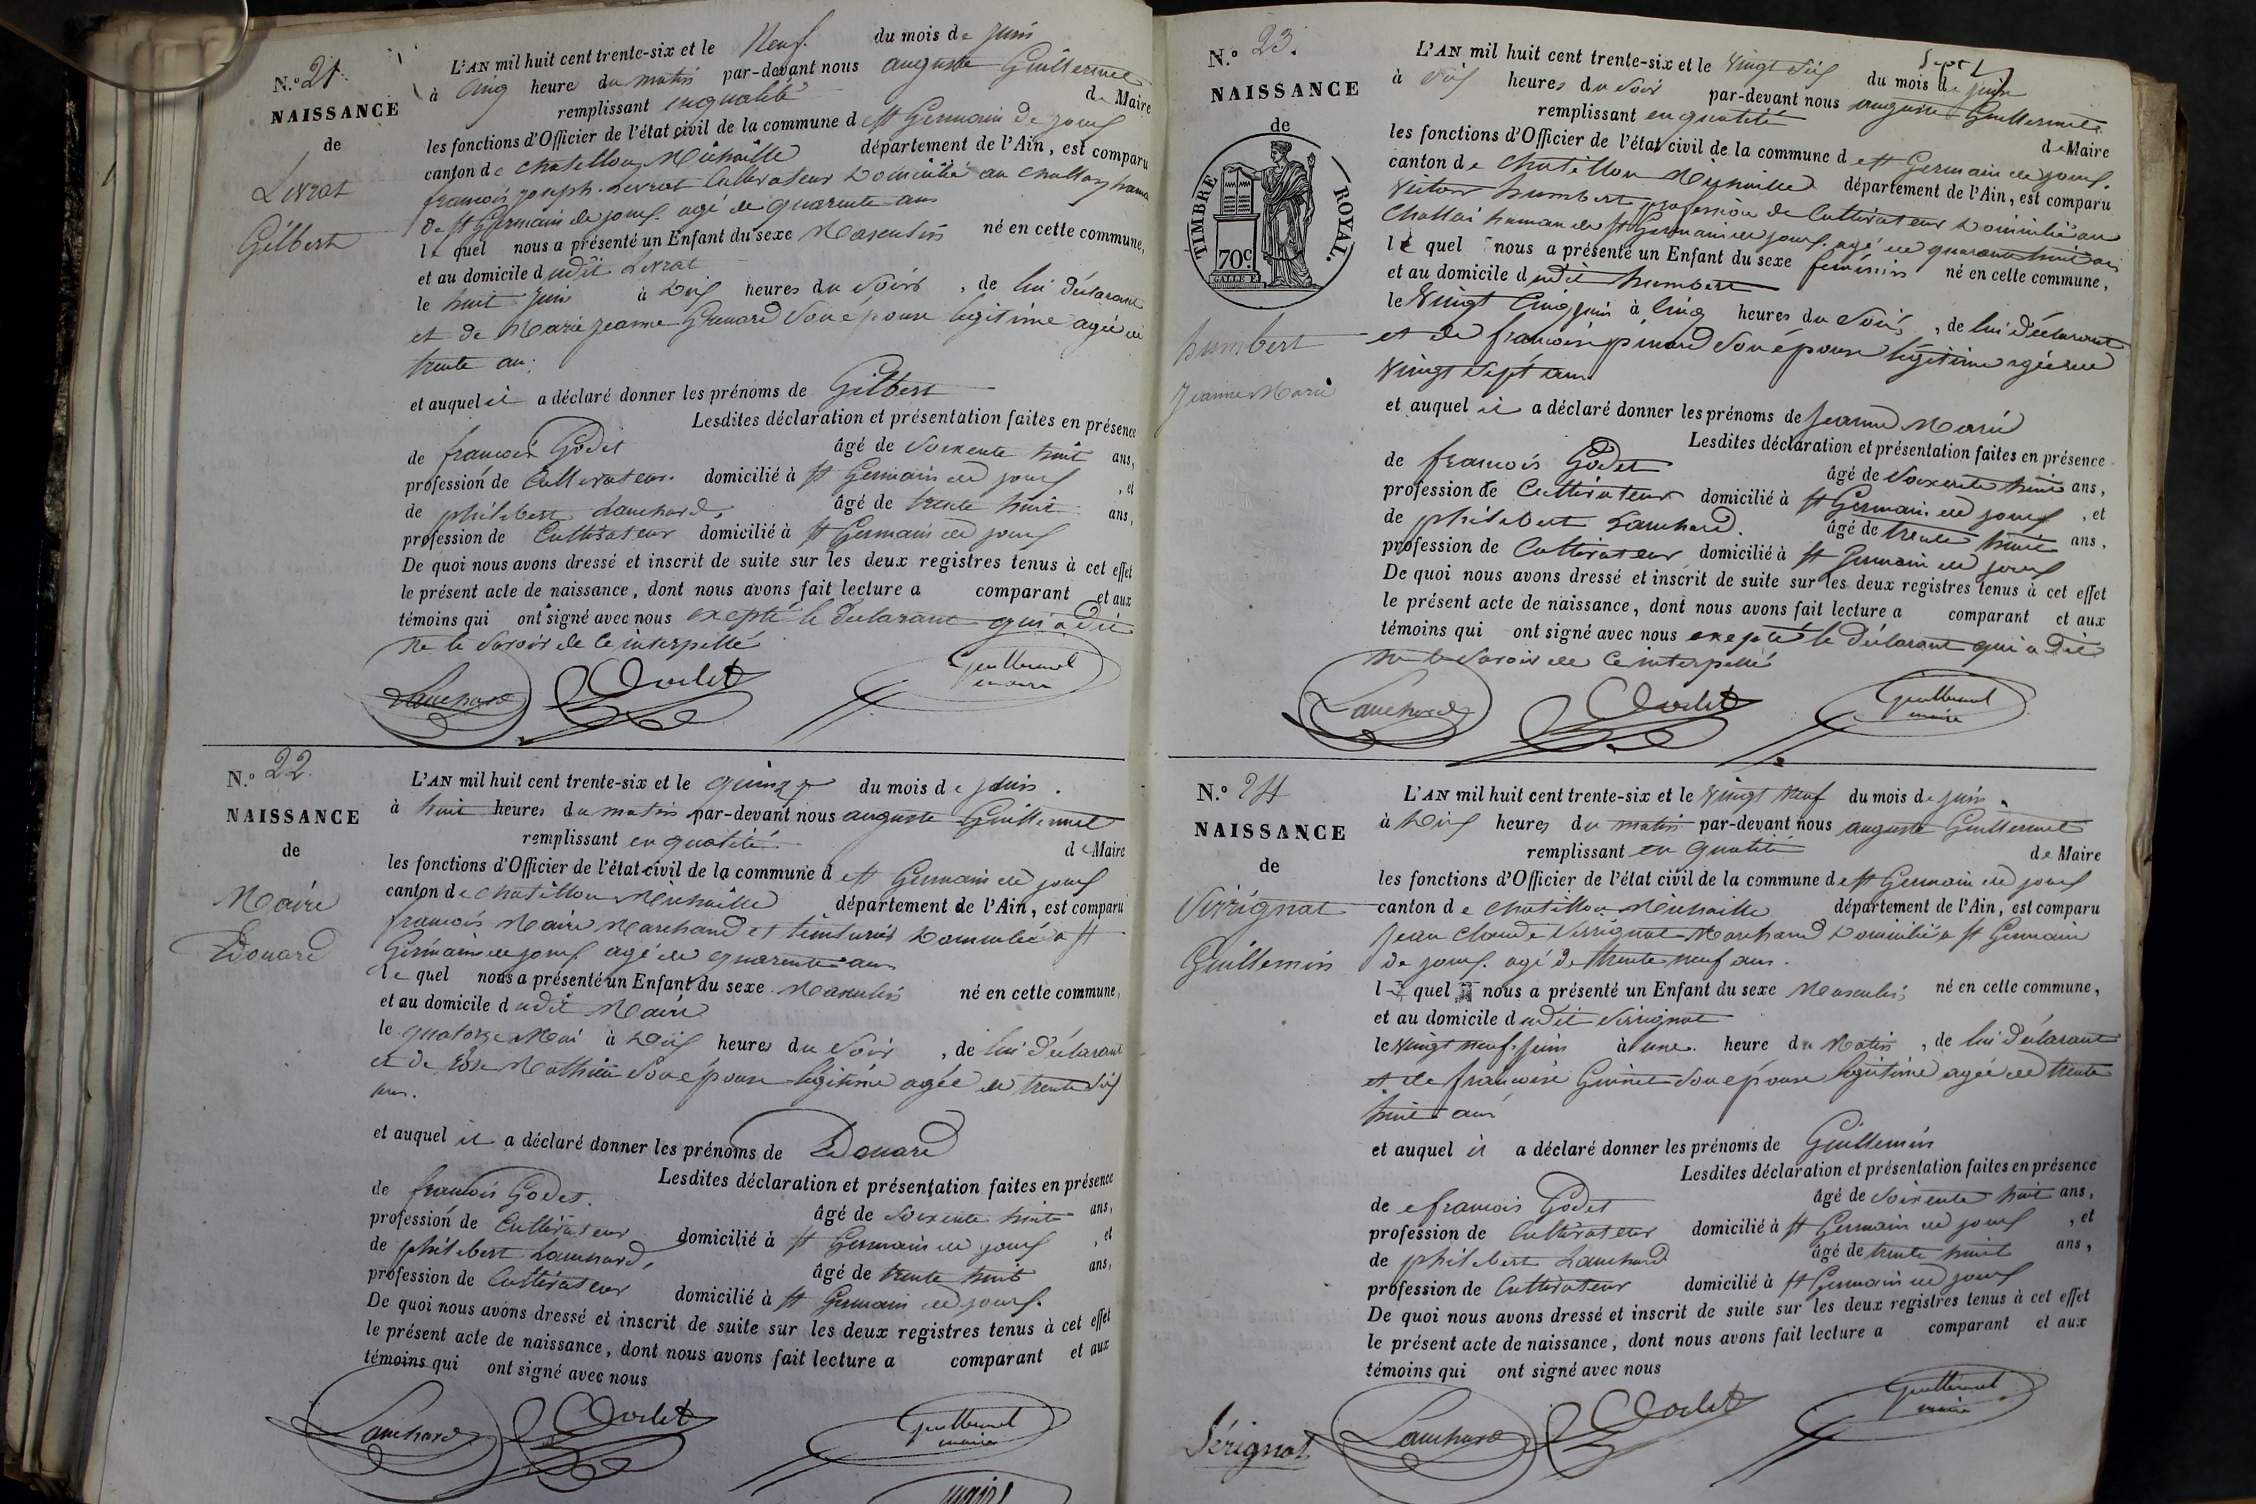 N.° 21.
NAISSANCE
de
Livrat
Gilbert
L'AN mil huit cent trente-six et le Neuf. du mois de juin
à cinq heure du matin par-devant nous auguste Guillermet
remplissant en qualité de Maire
les fonctions d'Officier de l'état civil de la commune d e St Germain de joux
canton de chatillon Michaille département de l'Ain, est comparu
francois joseph Livrat Cultivateur Domicilié au
de St Germain de joux. agé de quarente ans
le quel nous a présenté un Enfant du sexe Masculin né en cette commune,
et au domicile dudit Livrat
le huit juin à Dix heures du Soir, de lui déclarant
et de Marie jeanne Grenard Son épouse legitime agée de
trente an.
et auquel il a déclaré donner les prénoms de Gilbert
Lesdites déclaration et présentation faites en présence
de francois Godet âgé de Soixente huit ans,
profession de Cultivateur. domicilié à St Germain de joux, et
de philibert Lanchard, âgé de trente huit ans,
profession de Cultivateur domicilié à St Germain de joux
De quoi nous avons dressé et inscrit de suite sur les deux registres tenus à cet effet
le présent acte de naissance, dont nous avons fait lecture a comparant et aux
témoins qui ont signé avec nous excepté le declarant qui a dit
ne le Savoir de ce interpellé
Lanchard Godet Guillermet
maire
N.° 22.
NAISSANCE
de
Maire
Edouard
L'AN mil huit cent trente-six et le quinze du mois de juin.
à huit heures du matin par-devant nous auguste Guillermet
remplissant en qualité. de Maire
les fonctions d'Officier de l'état civil de la commune d e St Germain de joux
canton de chatillon Michaille département de l'Ain, est comparu
francois Maire Marchand et teinturier Domicilié a St
Germain de joux agé de quarente ans
le quel nous a présenté un Enfant du sexe Masculin né en cette commune,
et au domicile dudit Maire
le quatorze Mai à Dix heures du Soir, de lui déclarant
et de Rose Mathieu Son épouse legitime agée de trente Six
ans.
et auquel il a déclaré donner les prénoms de Edouard
Lesdites déclaration et présentation faites en présence
de francois Godet. âgé de Soixente huit ans,
profession de Cultivateur domicilié à St Germain de joux, et
de philibert Lanchard, âgé de trente huit ans,
profession de Cultivateur domicilié à St Germain de joux.
De quoi nous avons dressé et inscrit de suite sur les deux registres tenus à cet effet
le présent acte de naissance, dont nous avons fait lecture a comparant et aux
témoins qui ont signé avec nous
Lanchard Godet Guillermet
maire
N.° 23.
NAISSANCE
de
TIMBRE ROYAL.
70c
humbert
Jeanne Marie
L'AN mil huit cent trente-six et le Vingt Six du mois de juin
à Six heures du Soir par-devant nous auguste Guillermet
remplissant en qualité de Maire
les fonctions d'Officier de l'état civil de la commune d e St Germain de joux.
canton de chatillon Michaille département de l'Ain, est comparu
Victor humbert profession de Cultivateur Domicilié au
de St Germain de joux. agé de quarante huit ans
le quel nous a présenté un Enfant du sexe feminin né en cette commune,
et au domicile dudit humbert
le Vingt Cinq juin à Cinq heures du Soir, de lui déclarant
et de francoise Son épouse légitime agée de
Vingt Sept ans
et auquel il a déclaré donner les prénoms de Jeanne Marie
Lesdites déclaration et présentation faites en présence
de francois Godet âgé de Soixente huit ans,
profession de Cultivateur domicilié à St Germain de joux, et
de philibert Lanchard. âgé de trente huit ans,
profession de Cultivateur domicilié à St Germain de joux
De quoi nous avons dressé et inscrit de suite sur les deux registres tenus à cet effet
le présent acte de naissance, dont nous avons fait lecture a comparant et aux
témoins qui ont signé avec nous excepté le déclarant qui a dit
ne le Savoir de ce interpellé
Lanchard Godet Guillermet
maire
N.° 24
NAISSANCE
de
Sirrignat
Guillemin
L'AN mil huit cent trente-six et le Vingt Neuf du mois de juin.
à Dix heures du matin par-devant nous auguste Guillermet
remplissant en qualité de Maire
les fonctions d'Officier de l'état civil de la commune d e St Germain de joux
canton de chatillon Michaille département de l'Ain, est comparu
Jean Claude Sirrignat Marchand Domicilié a St Germain
de joux. agé de trente neuf ans.
le quel nous a présenté un Enfant du sexe Masculin né en cette commune,
et au domicile dudit Sirrignat
le Vingt neuf juin à une heure du Matin, de lui déclarant
et de francoise Guinet Son épouse legitime agée de trente
huit ans
et auquel il a déclaré donner les prénoms de Guillemin
Lesdites déclaration et présentation faites en présence
de francois Godet âgé de Soixente huit ans,
profession de Cultivateur domicilié à St Germain de joux, et
de philibert Lanchard âgé de trente huit ans,
profession de Cultivateur domicilié à St Germain de joux
De quoi nous avons dressé et inscrit de suite sur les deux registres tenus à cet effet
le présent acte de naissance, dont nous avons fait lecture a comparant et aux
témoins qui ont signé avec nous
Sérignat Lanchard Godet Guillermet
maire